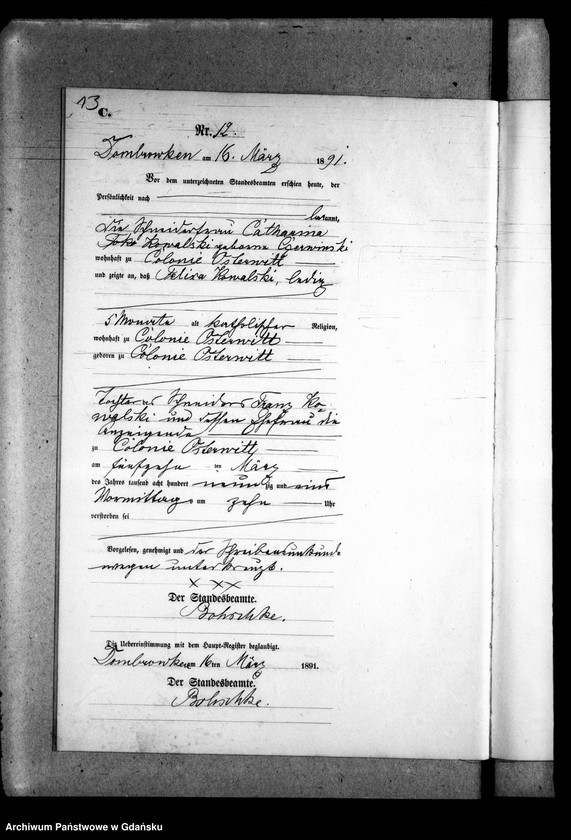 13
C.
Nr. 12.
Dombrowken am 16. März 1891.
Vor dem unterzeichneten Standesbeamten erschien heute, der
Persönlichkeit nach
bekannt,
die Schneiderfrau Catharina
Kowalski geborene Czerwinski
wohnhaft zu Colonie Osterwitt
und zeigte an, daß Felixa Kowalski, ledig
5 Monate alt katholischer Religion,
wohnhaft zu Colonie Osterwitt
geboren zu Colonie Osterwitt
Tochter des Schneiders Franz Ko-
walski und dessen Ehefrau die
Anzeigende
zu Colonie Osterwitt
am fünfzehn ten März
des Jahres tausend acht hundert neunzig und eins
Vormittag um zehn Uhr
verstorben sei
Vorgelesen, genehmigt und der Schreibensunkunde
wegen unterkreuzt.
x xx
Der Standesbeamte.
Bohschke.
Die Uebereinstimmung mit dem Haupt-Register beglaubigt.
Dombrowken am 16ten März 1891.
Der Standesbeamte.
Bohschke.
Archiwum Państwowe w Gdańsku